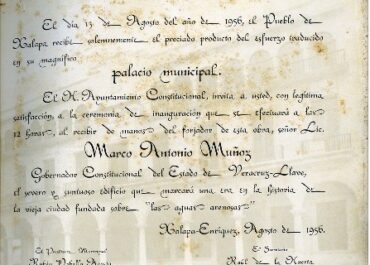 El día 13 de Agosto del año de 1956, el Pueblo de
Xalapa recibe solemnemente el preciado producto del esfuerzo traducido
en su magnífico
palacio municipal.
El H. Ayuntamiento Constitucional, invita a usted, con legítima
satisfacción a la ceremonia de inauguración que se efectuará a las
12 horas, al recibir de manos del forjador de esta obra, señor Lic.
Marco Antonio Muñoz
Gobernador Constitucional del Estado de Veracruz-Llave,
el severo y suntuoso edificio que marcará una era en la historia de
la vieja ciudad fundada sobre "las aguas arenosas"
Xalapa-Enríquez, Agosto de 1956.
El Presidente Municipal
El Síndico
Raúl de la Huerta